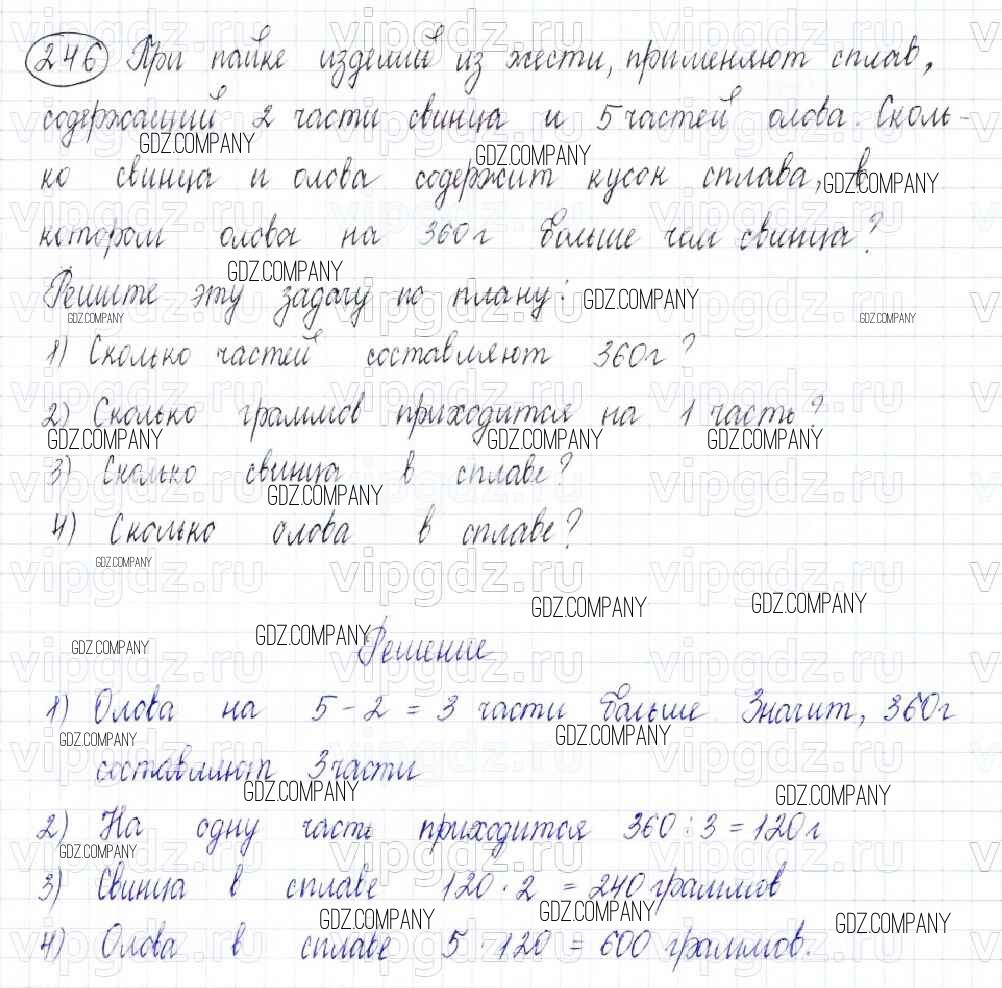 246 При пайке изделий из жести, применяют сплав,
содержащий 2 части свинца и 5 частей олова. Сколь-
ко свинца и олова содержит кусок сплава, в
котором олова на 360г больше чем свинца?
Решите эту задачу по плану:
1) Сколько частей составляют 360г?
2) Сколько граммов приходится на 1 часть?
3) Сколько свинца в сплаве?
4) Сколько олова в сплаве?
Решение
1) Олова на 5 - 2 = 3 части больше. Значит, 360г
составляют 3 части
2) На одну часть приходится 360 : 3 = 120г
3) Свинца в сплаве 120 · 2 = 240 граммов
4) Олова в сплаве 5 · 120 = 600 граммов.
GDZ.COMPANY
vipgdz.ru